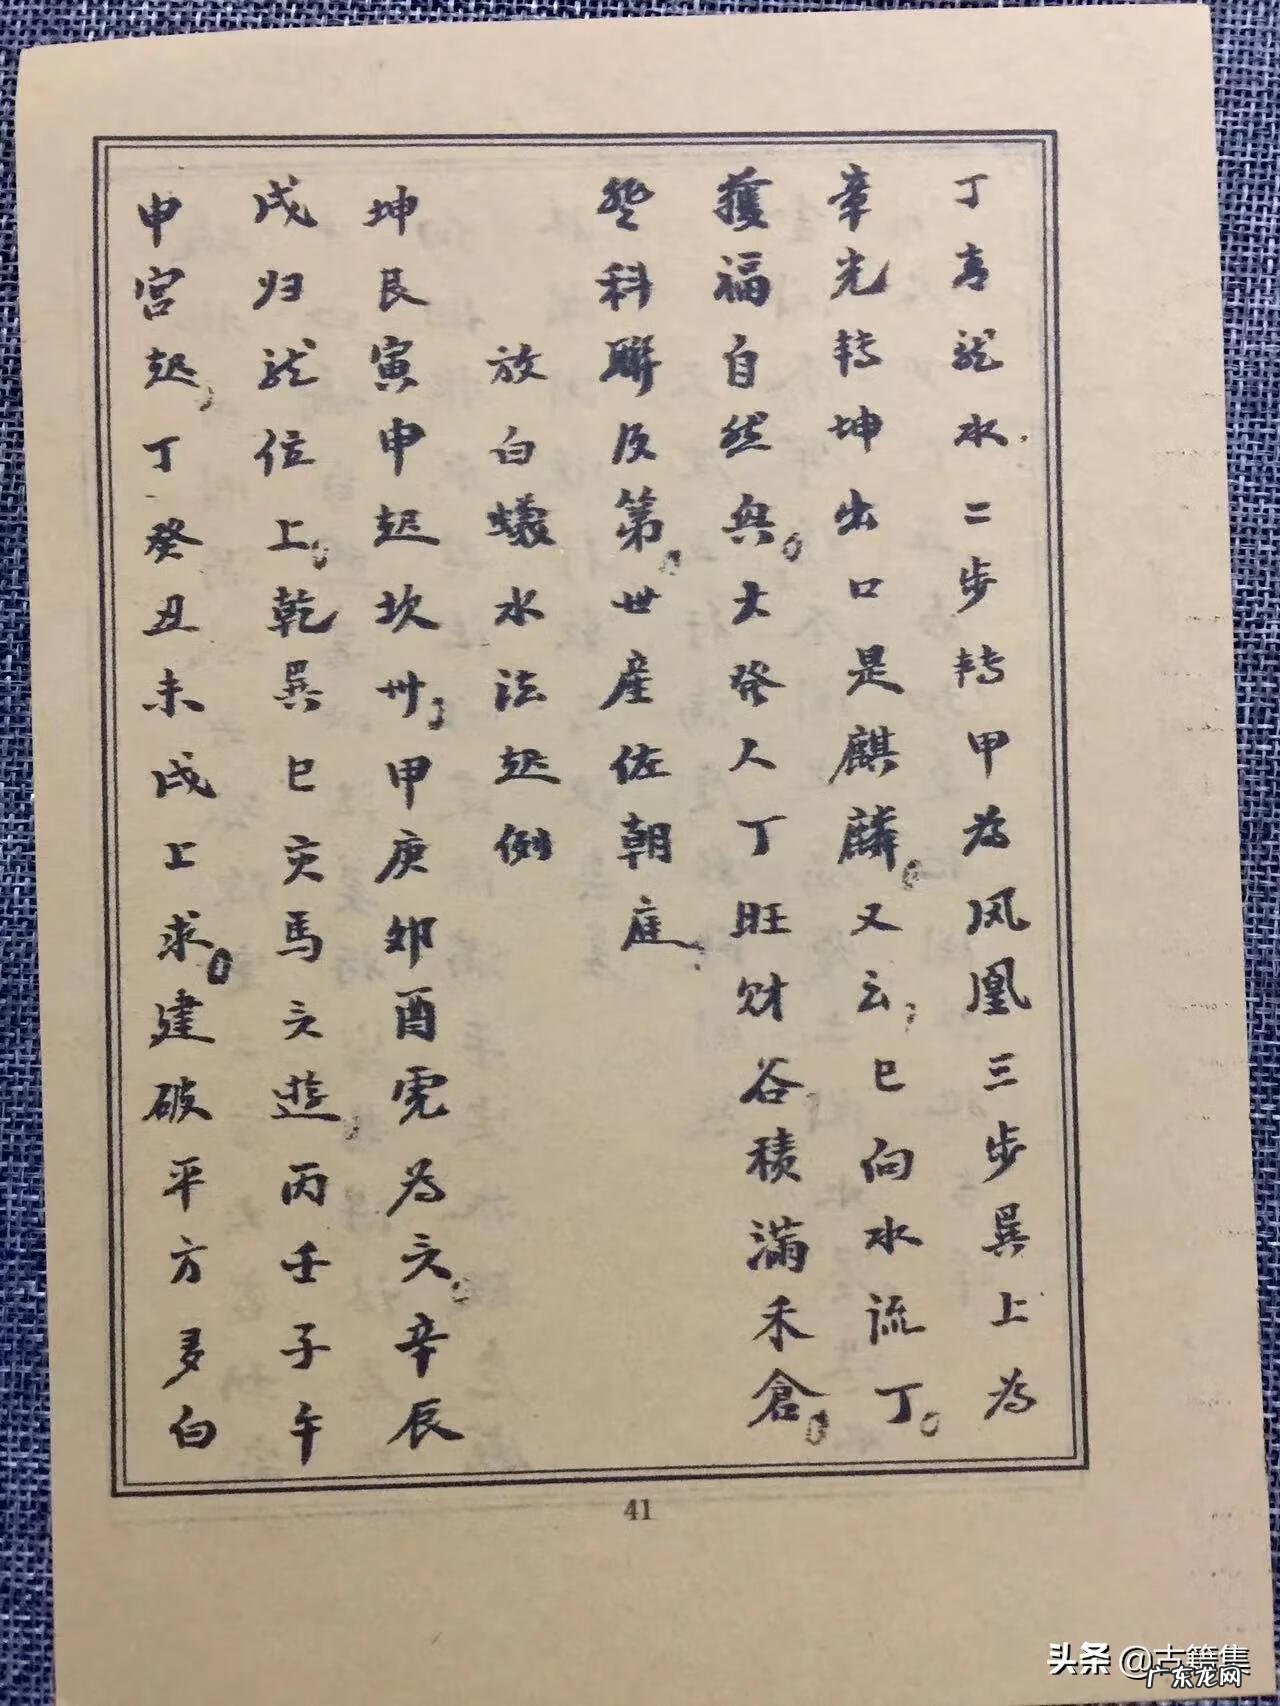 丁方龙水二步转甲为凤凰三步巽上为
章光转坤出口是麒麟。又云，巳向水流丁。
获福自然兴。大発人丁旺财谷积满禾倉。
登科聯及第。世産佐朝庭。
放白蟻水法起例
坤艮寅申起坎卅，甲庚卯酉虎为六。辛辰
戌归龙位上。乾巽巳亥馬六遊。丙壬子午
申宫起，丁癸丑未戌上求。建破平方多白
41
头条 @古籍集
广东龙网